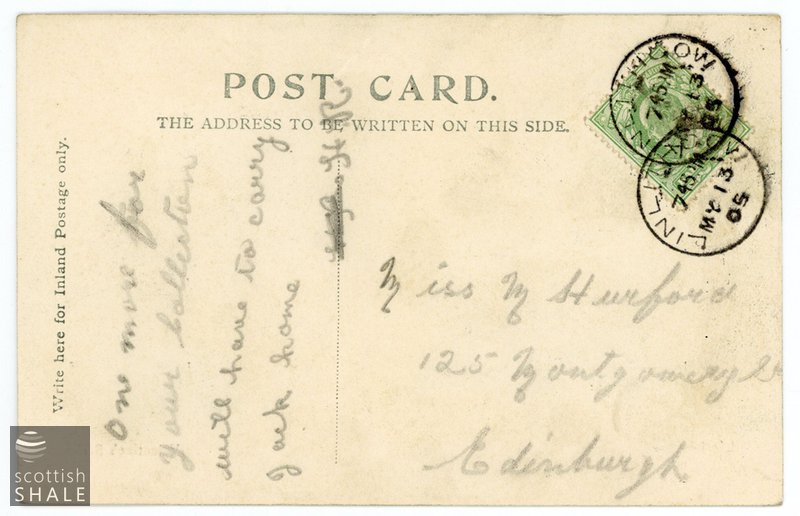 POST CARD.
THE ADDRESS TO BE WRITTEN ON THIS SIDE.
Write here for Inland Postage only.
One more for
your collection
will have to carry
Jack home
H R.
LINLITHGOW
7 45 PM
MY 13
05
LINLITHGOW
7 45 PM
MY 13
05
Miss M Hurford
125 Montgomery
Edinburgh
scottish
SHALE